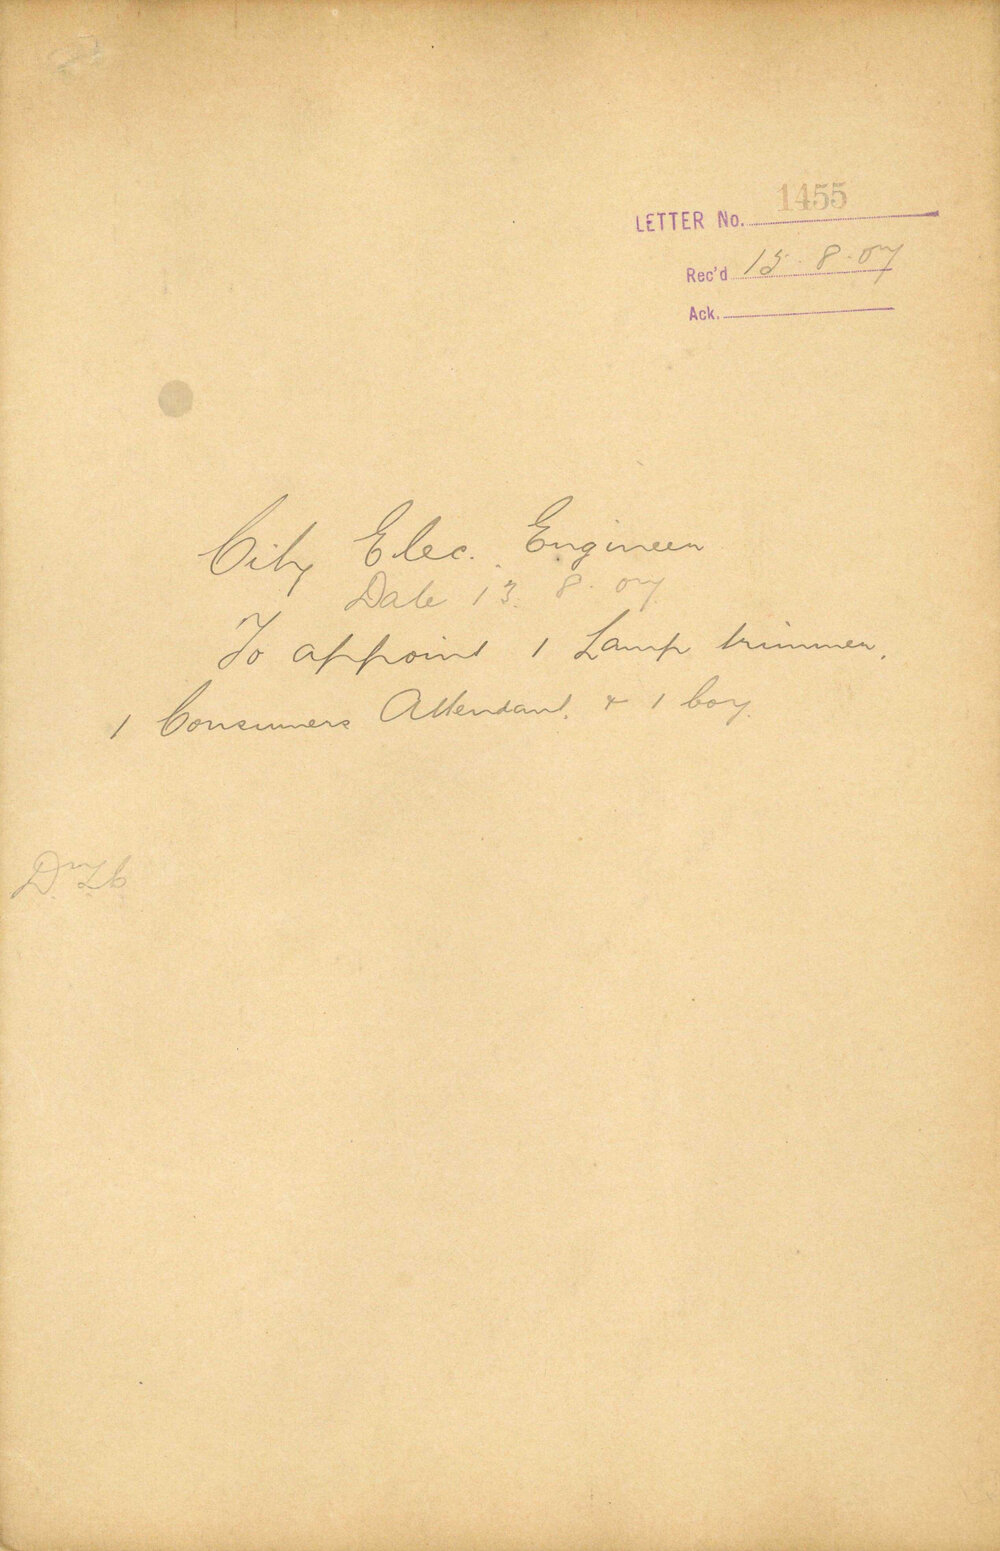 LETTER No. 1455
Rec'd 15.8.07
Ack.
City Elec. Engineer
Date 13.8.07
To appoint 1 Lamp trimmer,
1 Consumers Attendant, & 1 boy.